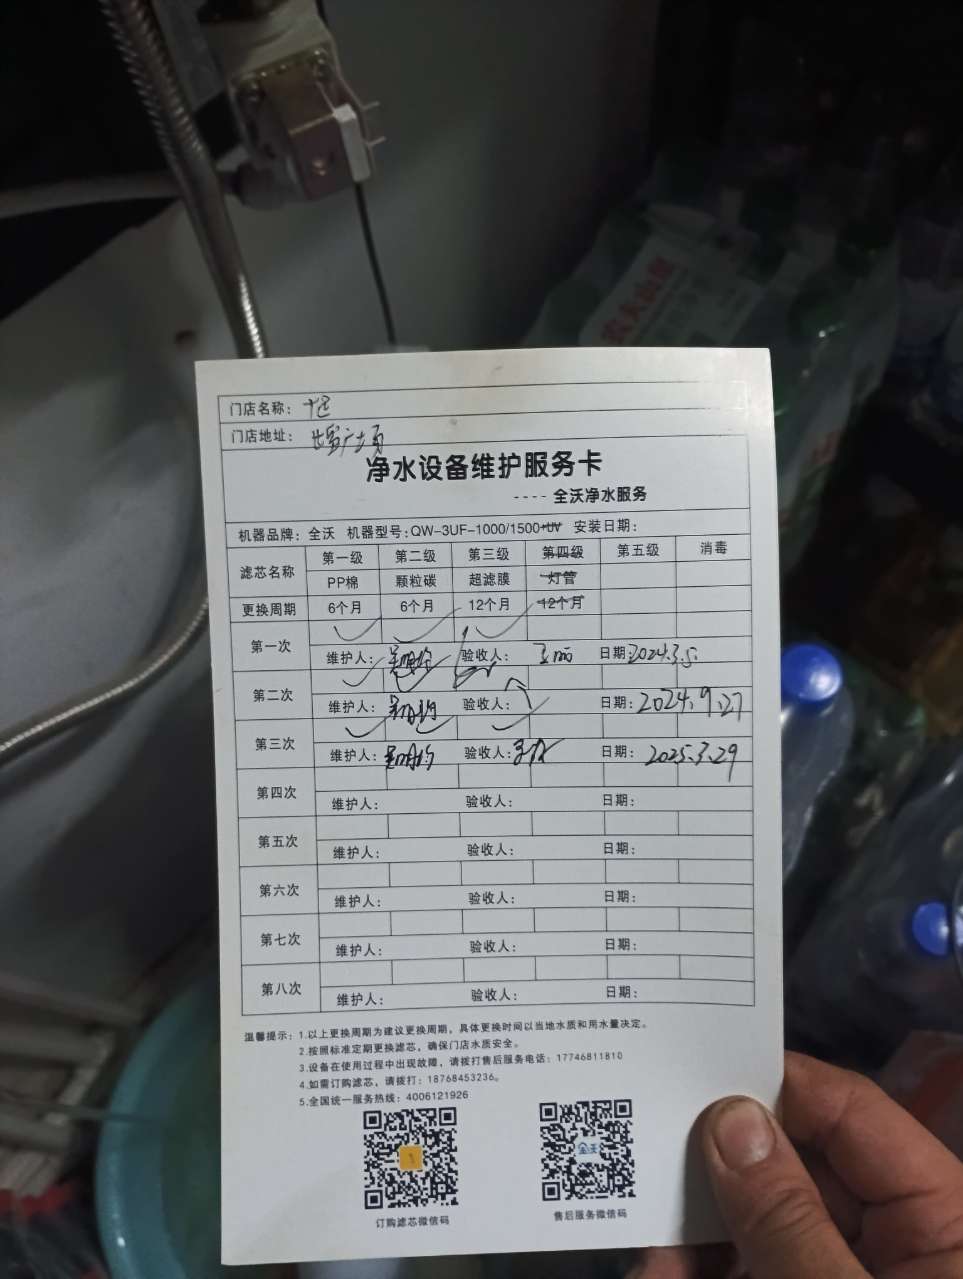 门店名称：
门店地址：世贸广场
净水设备维护服务卡
----全沃净水服务
机器品牌：全沃 机器型号：QW-3UF-1000/1500+UV 安装日期：
滤芯名称 第一级 第二级 第三级 第四级 第五级 消毒
PP棉 颗粒碳 超滤膜 灯管
更换周期 6个月 6个月 12个月 12个月
第一次
维护人： 验收人： 日期：2024.3.5.
第二次
维护人： 验收人： 日期：2024.9.27
第三次
维护人： 验收人： 日期：2025.3.29
第四次
维护人： 验收人： 日期：
第五次
维护人： 验收人： 日期：
第六次
维护人： 验收人： 日期：
第七次
维护人： 验收人： 日期：
第八次
维护人： 验收人： 日期：
温馨提示：1.以上更换周期为建议更换周期，具体更换时间以当地水质和用水量决定。
2.按照标准定期更换滤芯，确保门店水质安全。
3.设备在使用过程中出现故障，请拨打售后服务电话：17746811810
4.如需订购滤芯，请拨打：18768453236。
5.全国统一服务热线：4006121926
订购滤芯微信码
全沃
售后服务微信码
农夫山泉